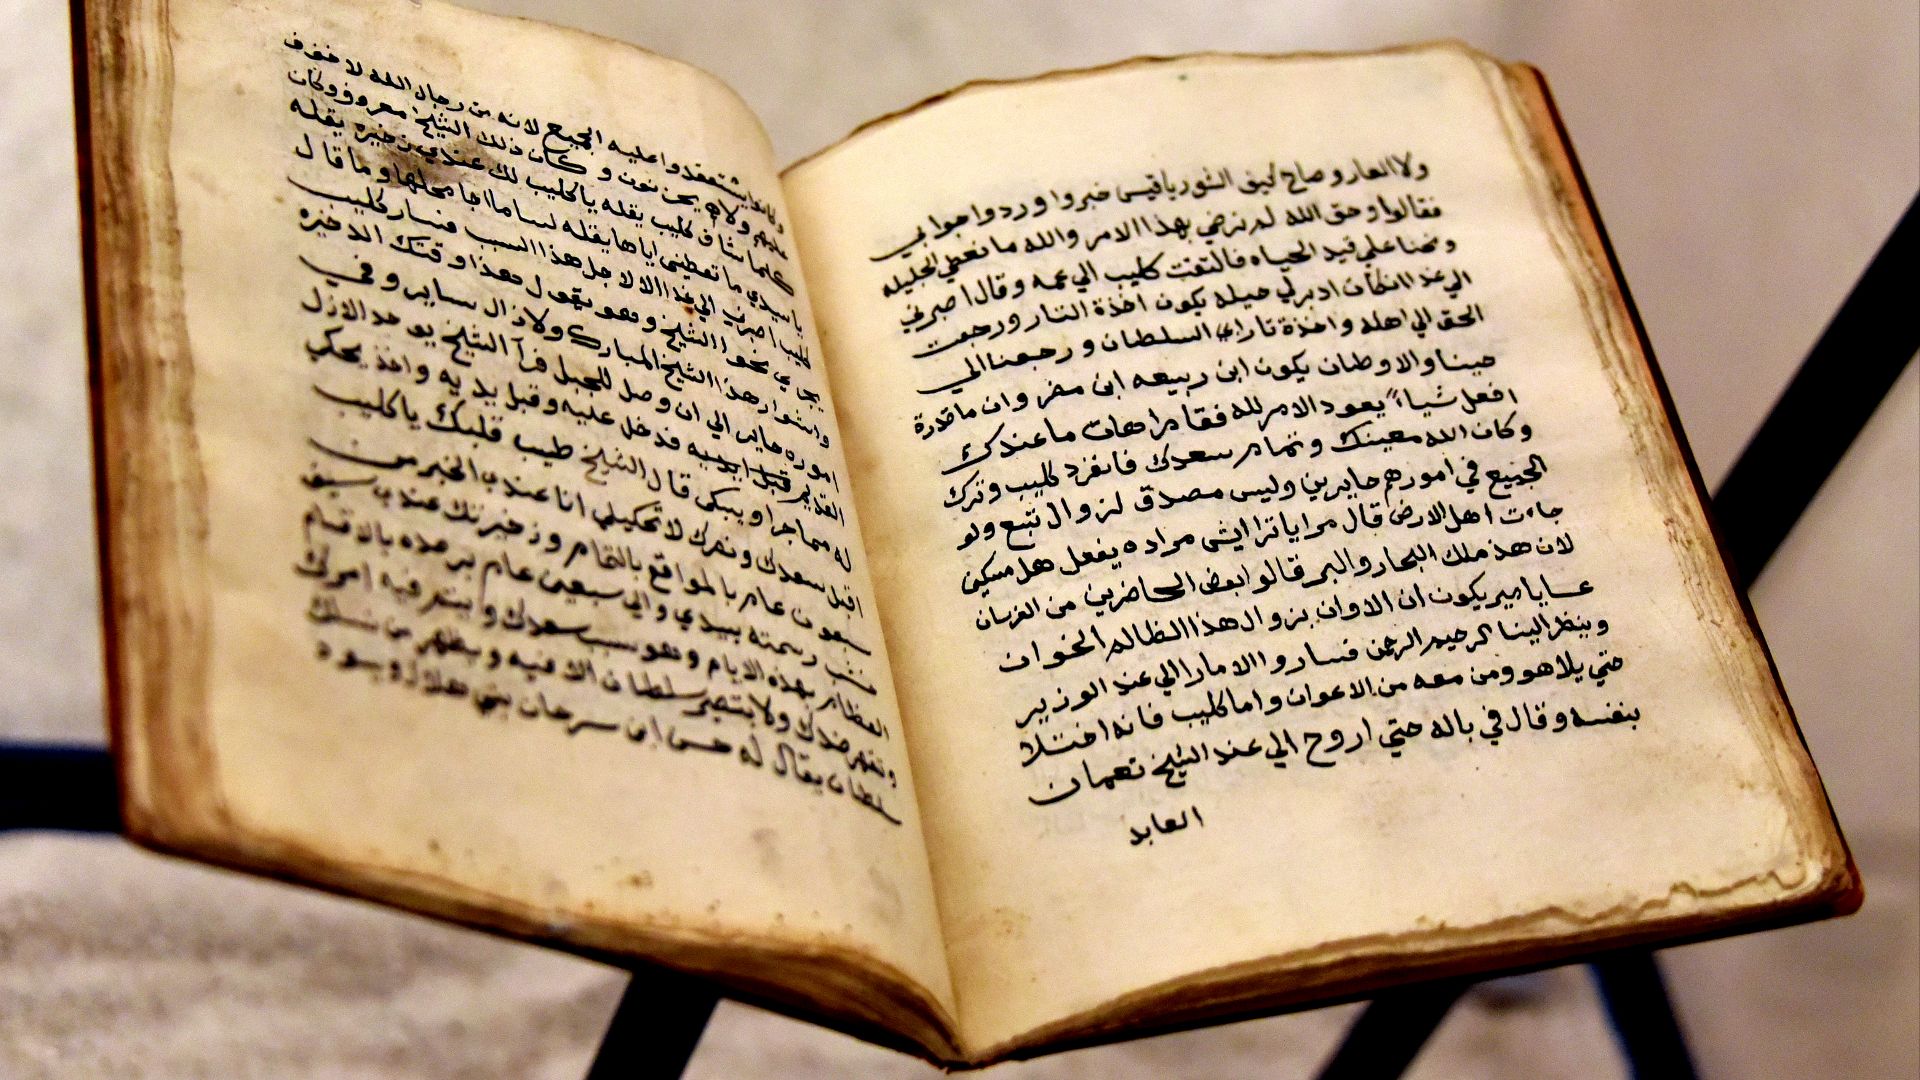 ولا العار وصاح كيف الشور يا قيس خبروا وردوا جوابي
فقالوا وحق الله لم نرضي بهذا الامر والله ما نعطي الجليله
ونحنا علي قيد الحياه فالتفت كليب الي عمه وقال اصبرني
الي غذا انكان ادبرلي حيله يكون اخذة التار ورجعت
الحق الي اهله واخذة تاراي السلطان ورجعنا الي
حينا والاوطان يكون ابن ربيعه ابن مضر وان ما قدرة
افعل شياء يعود الامر لله فقام راهات ما عندك
وكان الله معينك وتمام سعدك فانفرد كليب وترك
الجميع في امورهم حايرين وليس مصدق لزوال تبع ولو
جاءت اهل الارض قال مرا ياترا ايش مراده يفعل هل مسكين
لان هذ ملك البحار والبر قالوا بعض الحاضرين من الفرسان
عسا يا امير يكون ان الاوان بزوال هذا الظالم الخوان
وينظر الينا الرحيم الرحمن فساروا الامارا الي عند الوزير
حتي يلاهو ومن معه من الاعوان واما كليب فانه اختلا
بنفسه وقال في باله حتي اروح الي عند الشيخ نعمان
العابد
وكانوا يعتقدوا عليه الجميع لانه من رجال الله لا خوف
عليهم ولاهم يحزنون وكان ذلك الشيخ معروف وكان
كلما شاف كليب يقله يا كليب لك عندي زخيره يقله
يا سيدي ما تعطيني اياها يقله لسا ما اجا محلها وما قال
كليب اصبرني الي غذا الا لاجل هذا السبب فسار كليب
يجري نحوا الشيخ وهو يقول هذا وقتك الاخيره
وانشوار هذا الشيخ المبارك ولا زال ساير وفي
اموره حاير الي ان وصل للجبل فرآ الشيخ يوحد الازل
القديم قبل ايديه فدخل عليه وقبل يديه واخذ يحكي
له ما جرا ويبكي قال الشيخ طيب قلبك يا كليب
اقبل سعدك ونصرك لا تحكيلي انا عندي الخبر من
سبعون عام بالمواقع بالتمام وزخيرتك عندي سيف
خشب رسمته بيدي والي سبعين عام برصده بالاقسام
العظام بهذه الايام وهو سبب سعدك وينتم فيه امرك
وتقهر ضدك ولا يتصير سلطان الا فيه ويظهر من نسلك
سلطان يقال له حسن ابن سرحان بني هلال ويسود